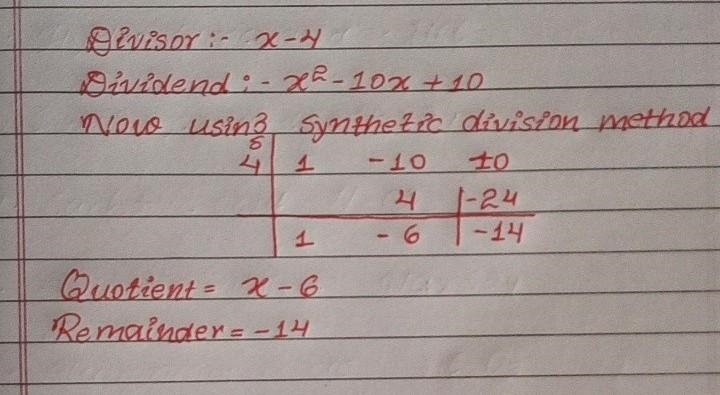 Divisor :- x-4
Dividend :- x²-10x+10
Now using synthetic division method
4 | 1 -10 10
4 | -24
1 -6 | -14
Quotient = x-6
Remainder = -14